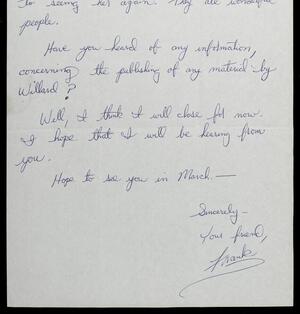 to seeing her again. They are wonderful
people.
Have you heard of any information,
concerning the publishing of any material by
Willard?
Well, I think I will close for now.
I hope that I will be hearing from
you.
Hope to see you in March.—
Sincerely—
Your friend,
Frank